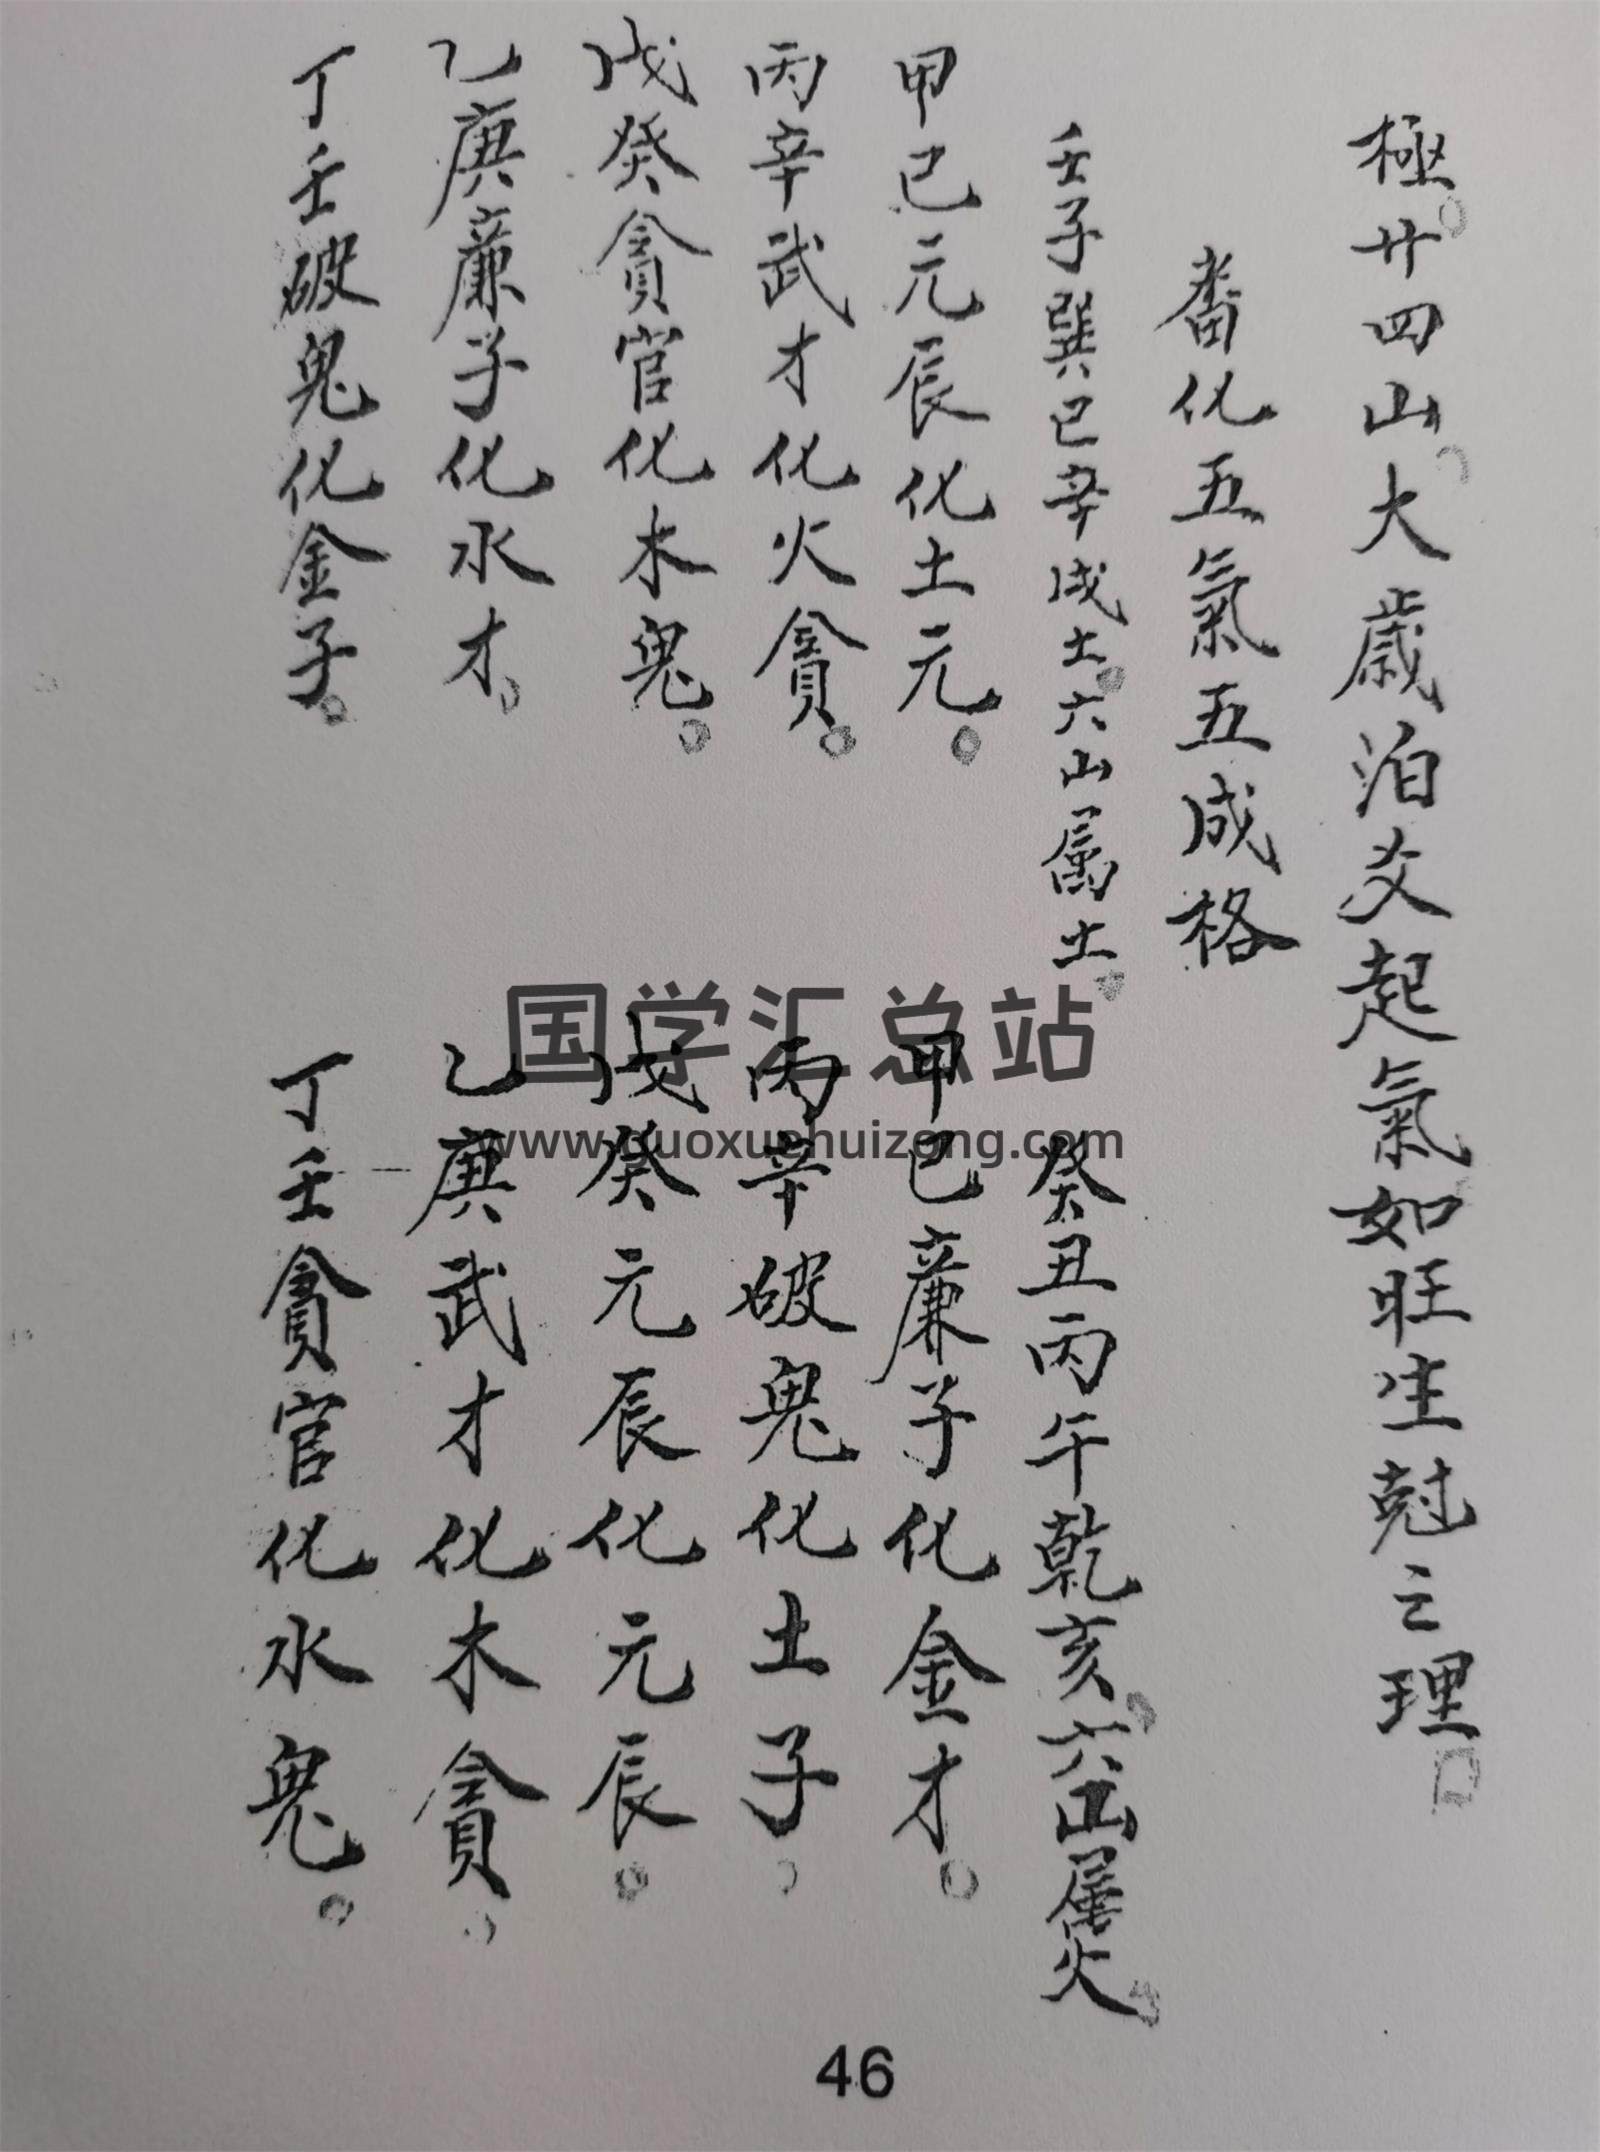 極。廿四山、大歲泊爻起氣如旺生尅之理。
番化五氣五成格
壬子巽巳辛戌土。六山属土。
甲己元辰化土元。
丙辛武才化火貪。
戊癸貪官化木鬼。
乙庚廉子化水才。
丁壬破鬼化金子。
癸丑丙午乾亥。六山属火。
甲己廉子化金才。
丙辛破鬼化土子。
戊癸元辰化元辰。
乙庚武才化木貪。
丁壬貪官化水鬼。
国学汇总站
www.guoxuehuizong.com
46